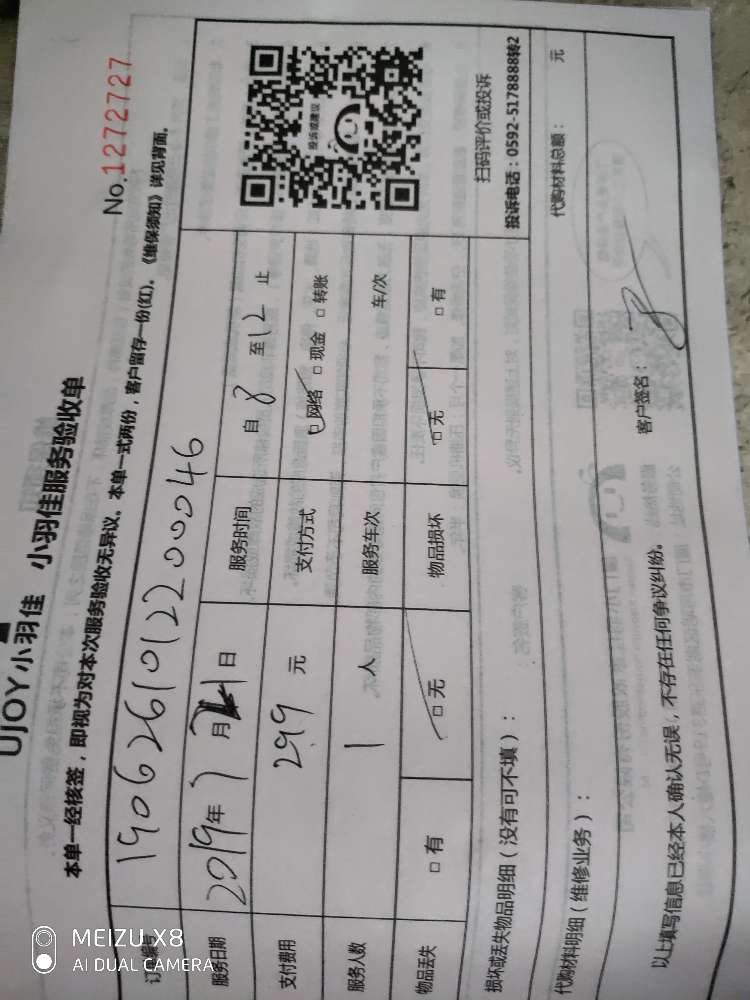 UJOY小羽佳 小羽佳服务验收单
No.1272727
本单一经核签，即视为对本次服务验收无异议。本单一式两份，客户留存一份(红)。《维保须知》详见背面。
19062610122000046
服务日期 2019年7月 日 服务时间 自8至12止
支付费用 299元 支付方式 □网络 □现金 □转账
服务人数 1人 服务车次 车/次
物品丢失 □有 □无 物品损坏 □无 □有
投诉或建议
扫码评价或投诉
投诉电话：0592-5178888转2
损坏或丢失物品明细（没有可不填）：
代购材料明细（维修业务）： 代购材料总额： 元
以上填写信息已经本人确认无误，不存在任何争议纠纷。 客户签名：
MEIZU X8
AI DUAL CAMERA